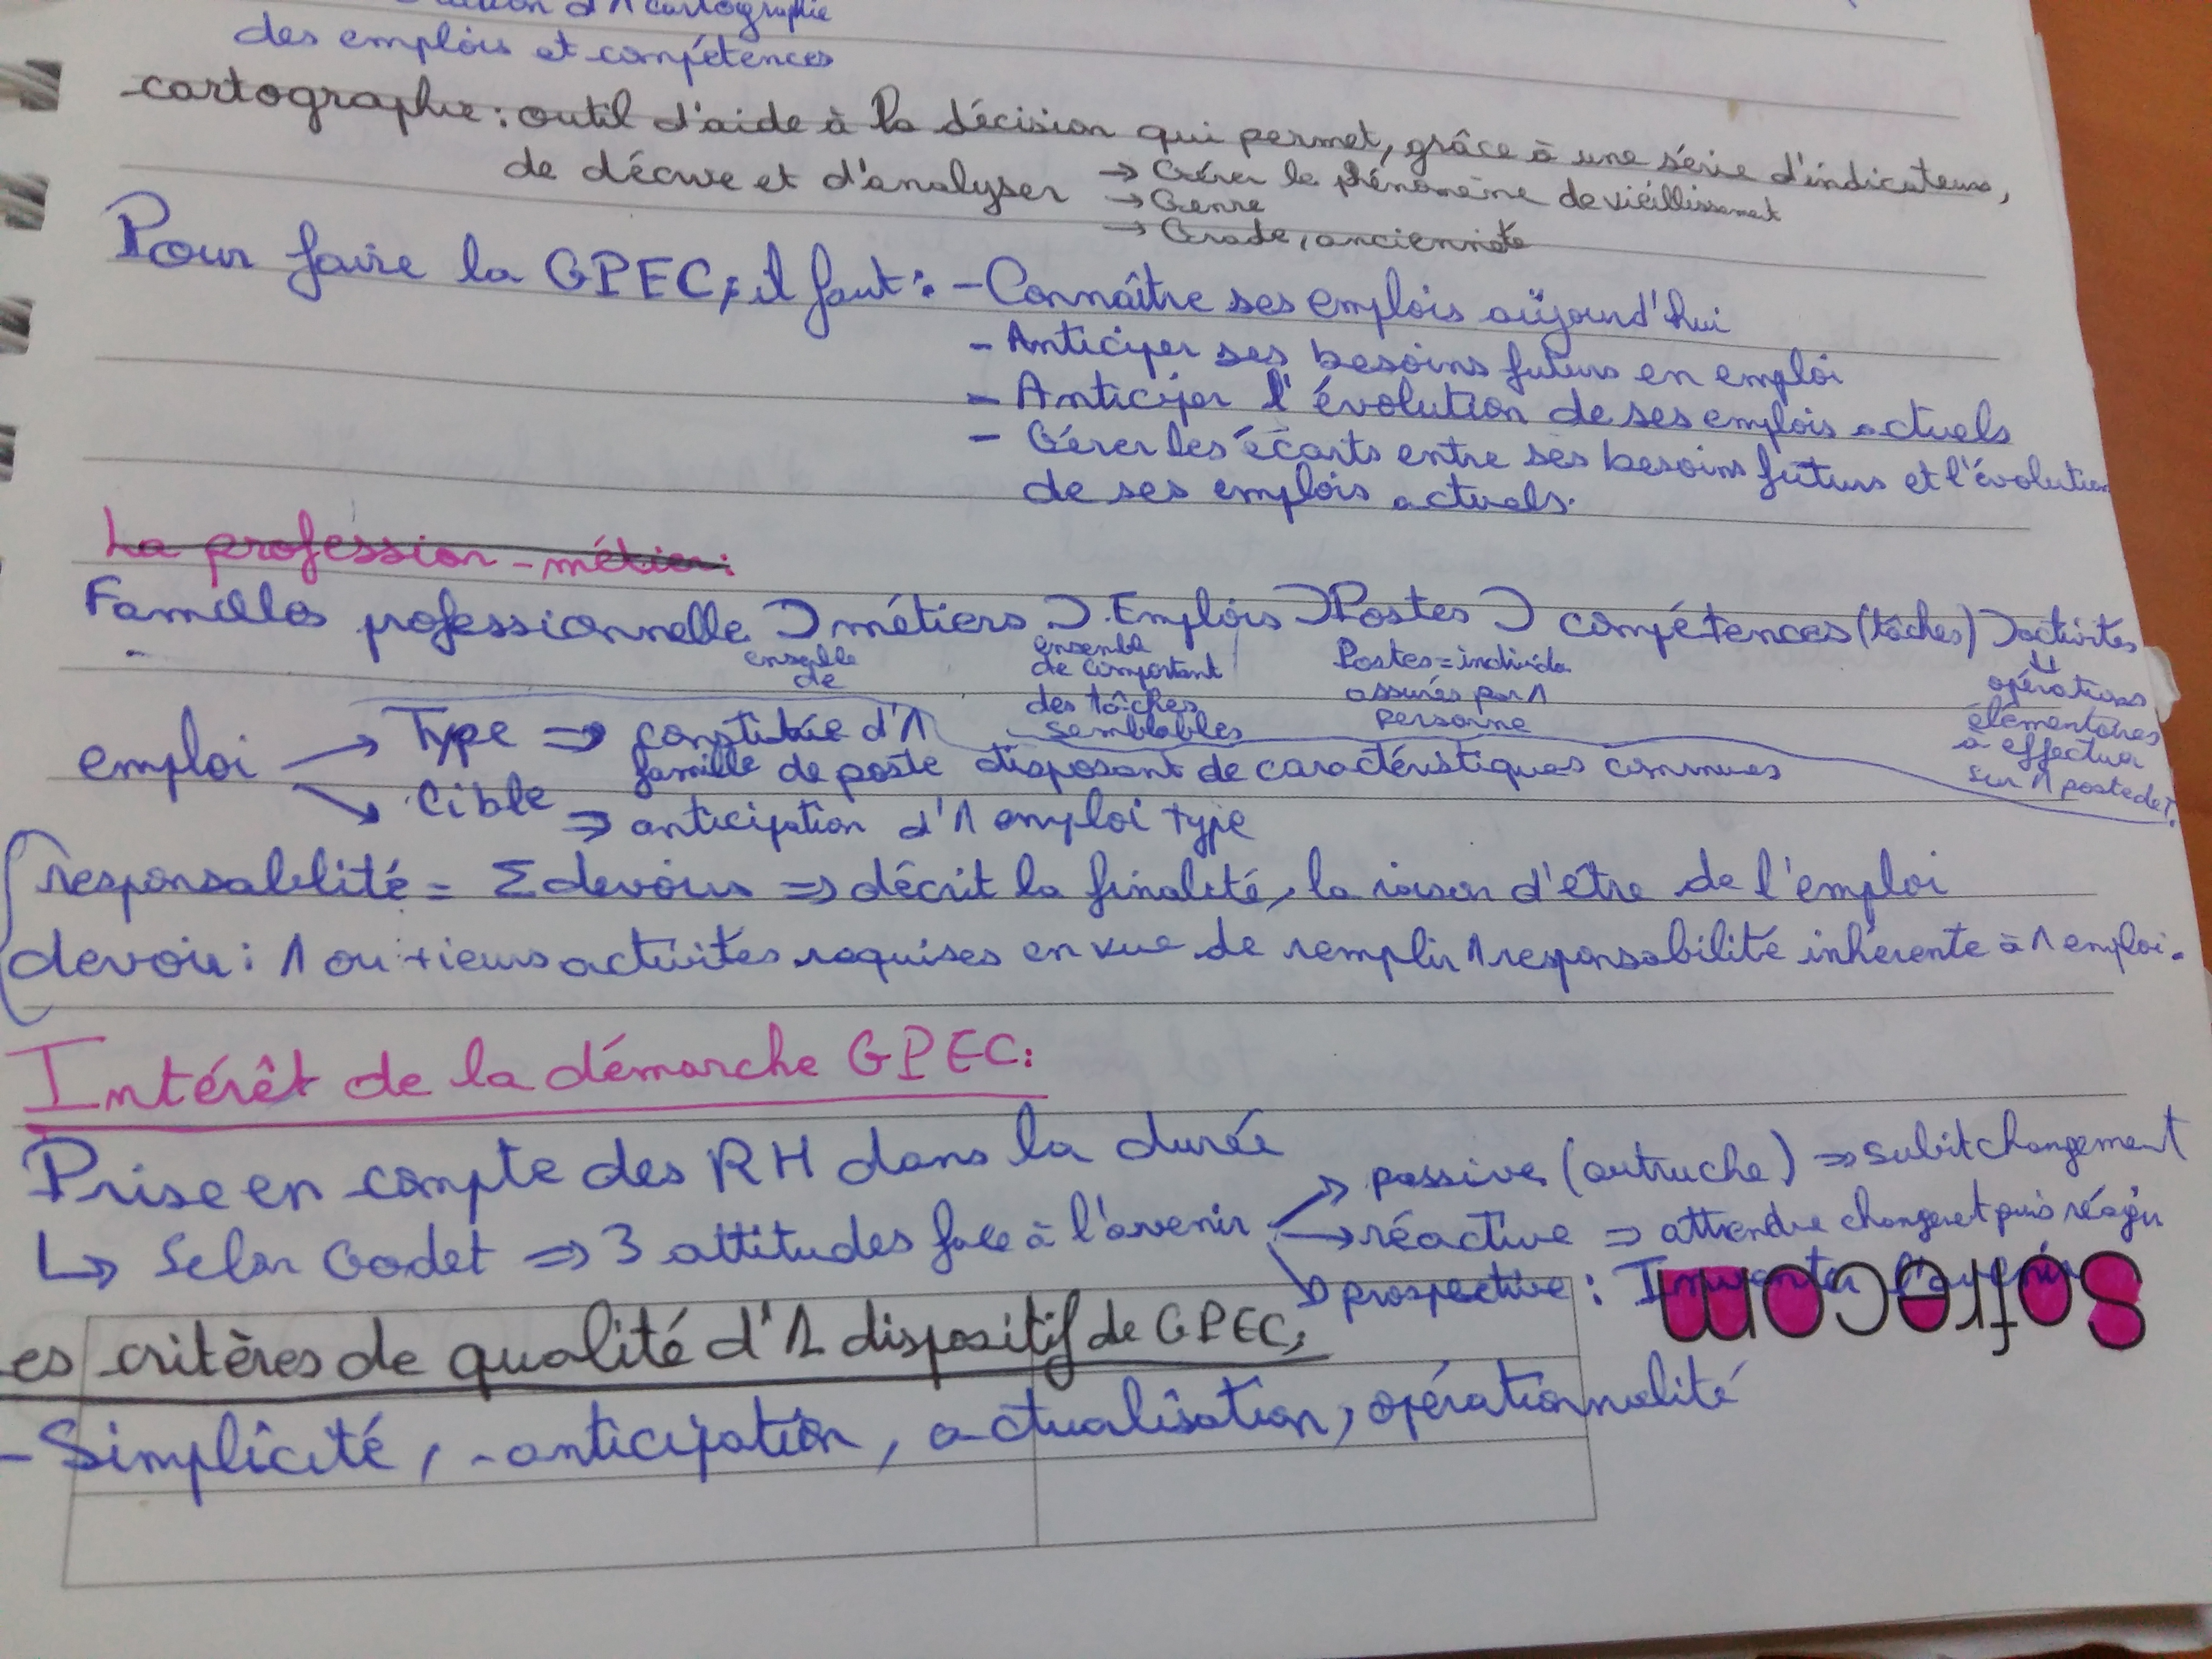 des emplois et compétences
-cartographie : outil d'aide à la décision qui permet, grâce à une série d'indicateurs,
de décrire et d'analyser → Gérer le phénomène de vieillissement
→ Genre
→ Grade, ancienneté
Pour faire la GPEC, il faut : - Connaître ses emplois aujourd'hui
- Anticiper ses besoins futurs en emploi
- Anticiper l'évolution de ses emplois actuels
- Gérer les écarts entre ses besoins futurs et l'évolution
de ses emplois actuels.
La profession - métier :
Familles professionnelle ⊃ métiers ⊃ Emplois ⊃ Postes ⊃ compétences (tâches) ⊃ activités
ensemble de
ensemble de comportant des tâches semblables
Postes = individu assurés par 1 personne
opérations élémentaires à effectuer sur 1 poste de
emploi → Type ⇒ constituée d'1 famille de poste disposant de caractéristiques communes
→ cible ⇒ anticipation d'1 emploi type
responsabilité = Σ devoirs ⇒ décrit la finalité, la raison d'être de l'emploi
devoir : 1 ou +ieurs activités requises en vue de remplir 1 responsabilité inhérente à 1 emploi.
Intérêt de la démarche GPEC :
Prise en compte des RH dans la durée
↳ Selon Godet ⇒ 3 attitudes face à l'avenir → passive (autruche) ⇒ subit changement
→ réactive ⇒ attendre changemt puis réagir
→ prospective :
es critères de qualité d'1 dispositif de GPEC :
- Simplicité, - anticipation, actualisation, opérationnalité
SoftGOM